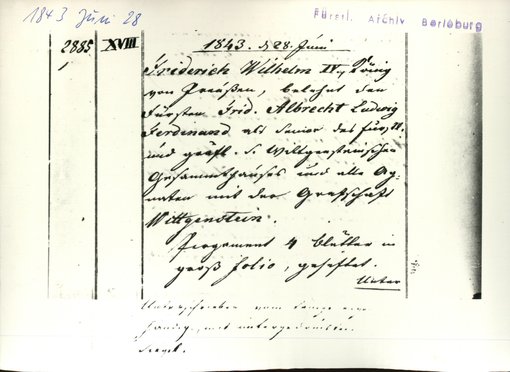 1843 Juni 28
Fürstl. Archiv Berleburg
2885 XVIII 1843. d. 28. Juni
Friderich Wilhelm IV., König
von Preußen, belehnt den
Fürsten Frid. Albrecht Ludwig
Ferdinand als Senior des fürstl.
und gräfl. S. Wittgensteinschen
Gesammthauses und alle Ag-
naten mit der Grafschaft
Wittgenstein.
Pergament 4 Blätter in
groß folio, geheftet.
Unter
Unterschrieben vom Könige eigen-
händig, mit untergedrucktem
Siegel.